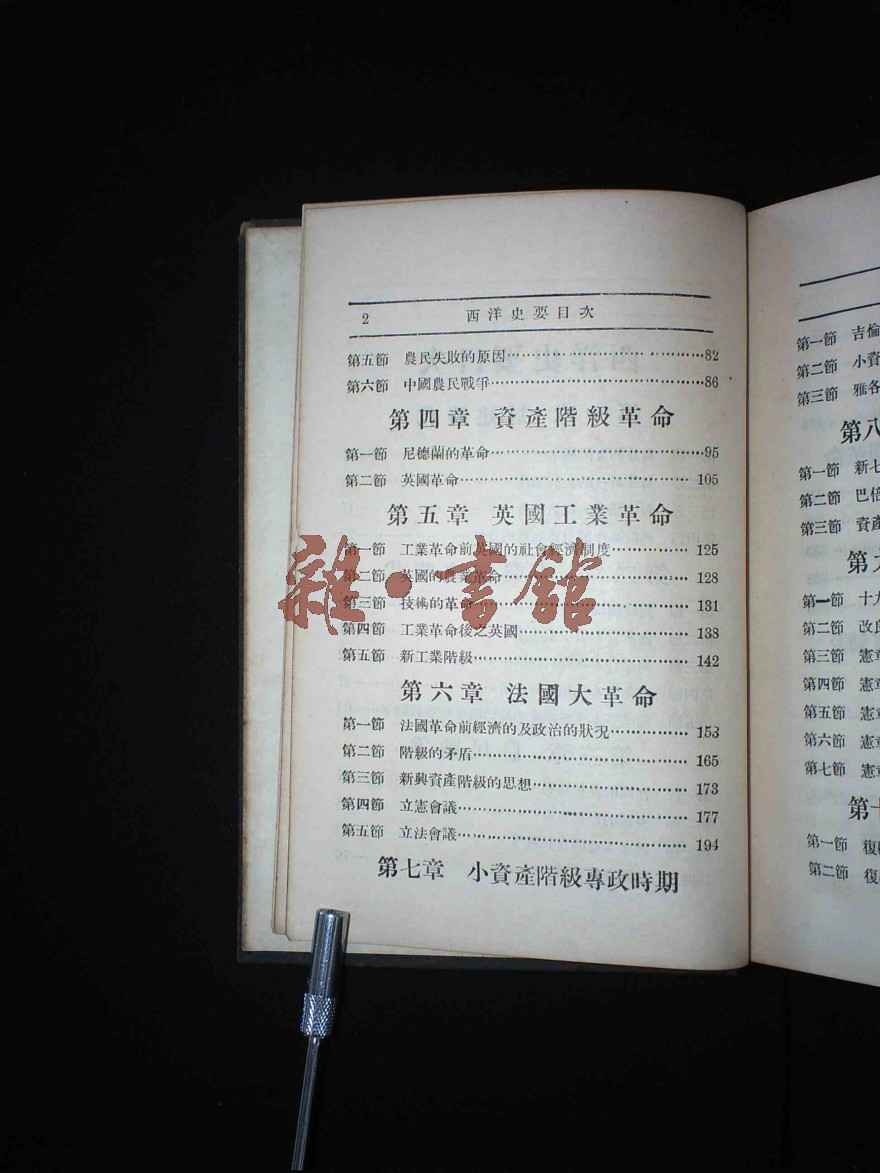 2 西洋史要目次
第五節 農民失敗的原因……82
第六節 中國農民戰爭……86
第四章 資產階級革命
第一節 尼德蘭的革命……95
第二節 英國革命……105
第五章 英國工業革命
第一節 工業革命前英國的社會經濟制度……125
第二節 英國的農業革命……128
第三節 技術的革命……131
第四節 工業革命後之英國……138
第五節 新工業階級……142
第六章 法國大革命
第一節 法國革命前經濟的及政治的狀況……153
第二節 階級的矛盾……165
第三節 新興資產階級的思想……173
第四節 立憲會議……177
第五節 立法會議……194
第七章 小資產階級專政時期
雜·書館
第一節 吉倫
第二節 小資
第三節 雅各
第八
第一節 新七
第二節 巴倍
第三節 資產
第九
第一節 十九
第二節 改良
第三節 憲章
第四節 憲章
第五節 憲章
第六節 憲章
第七節 憲章
第十
第一節 復
第二節 復